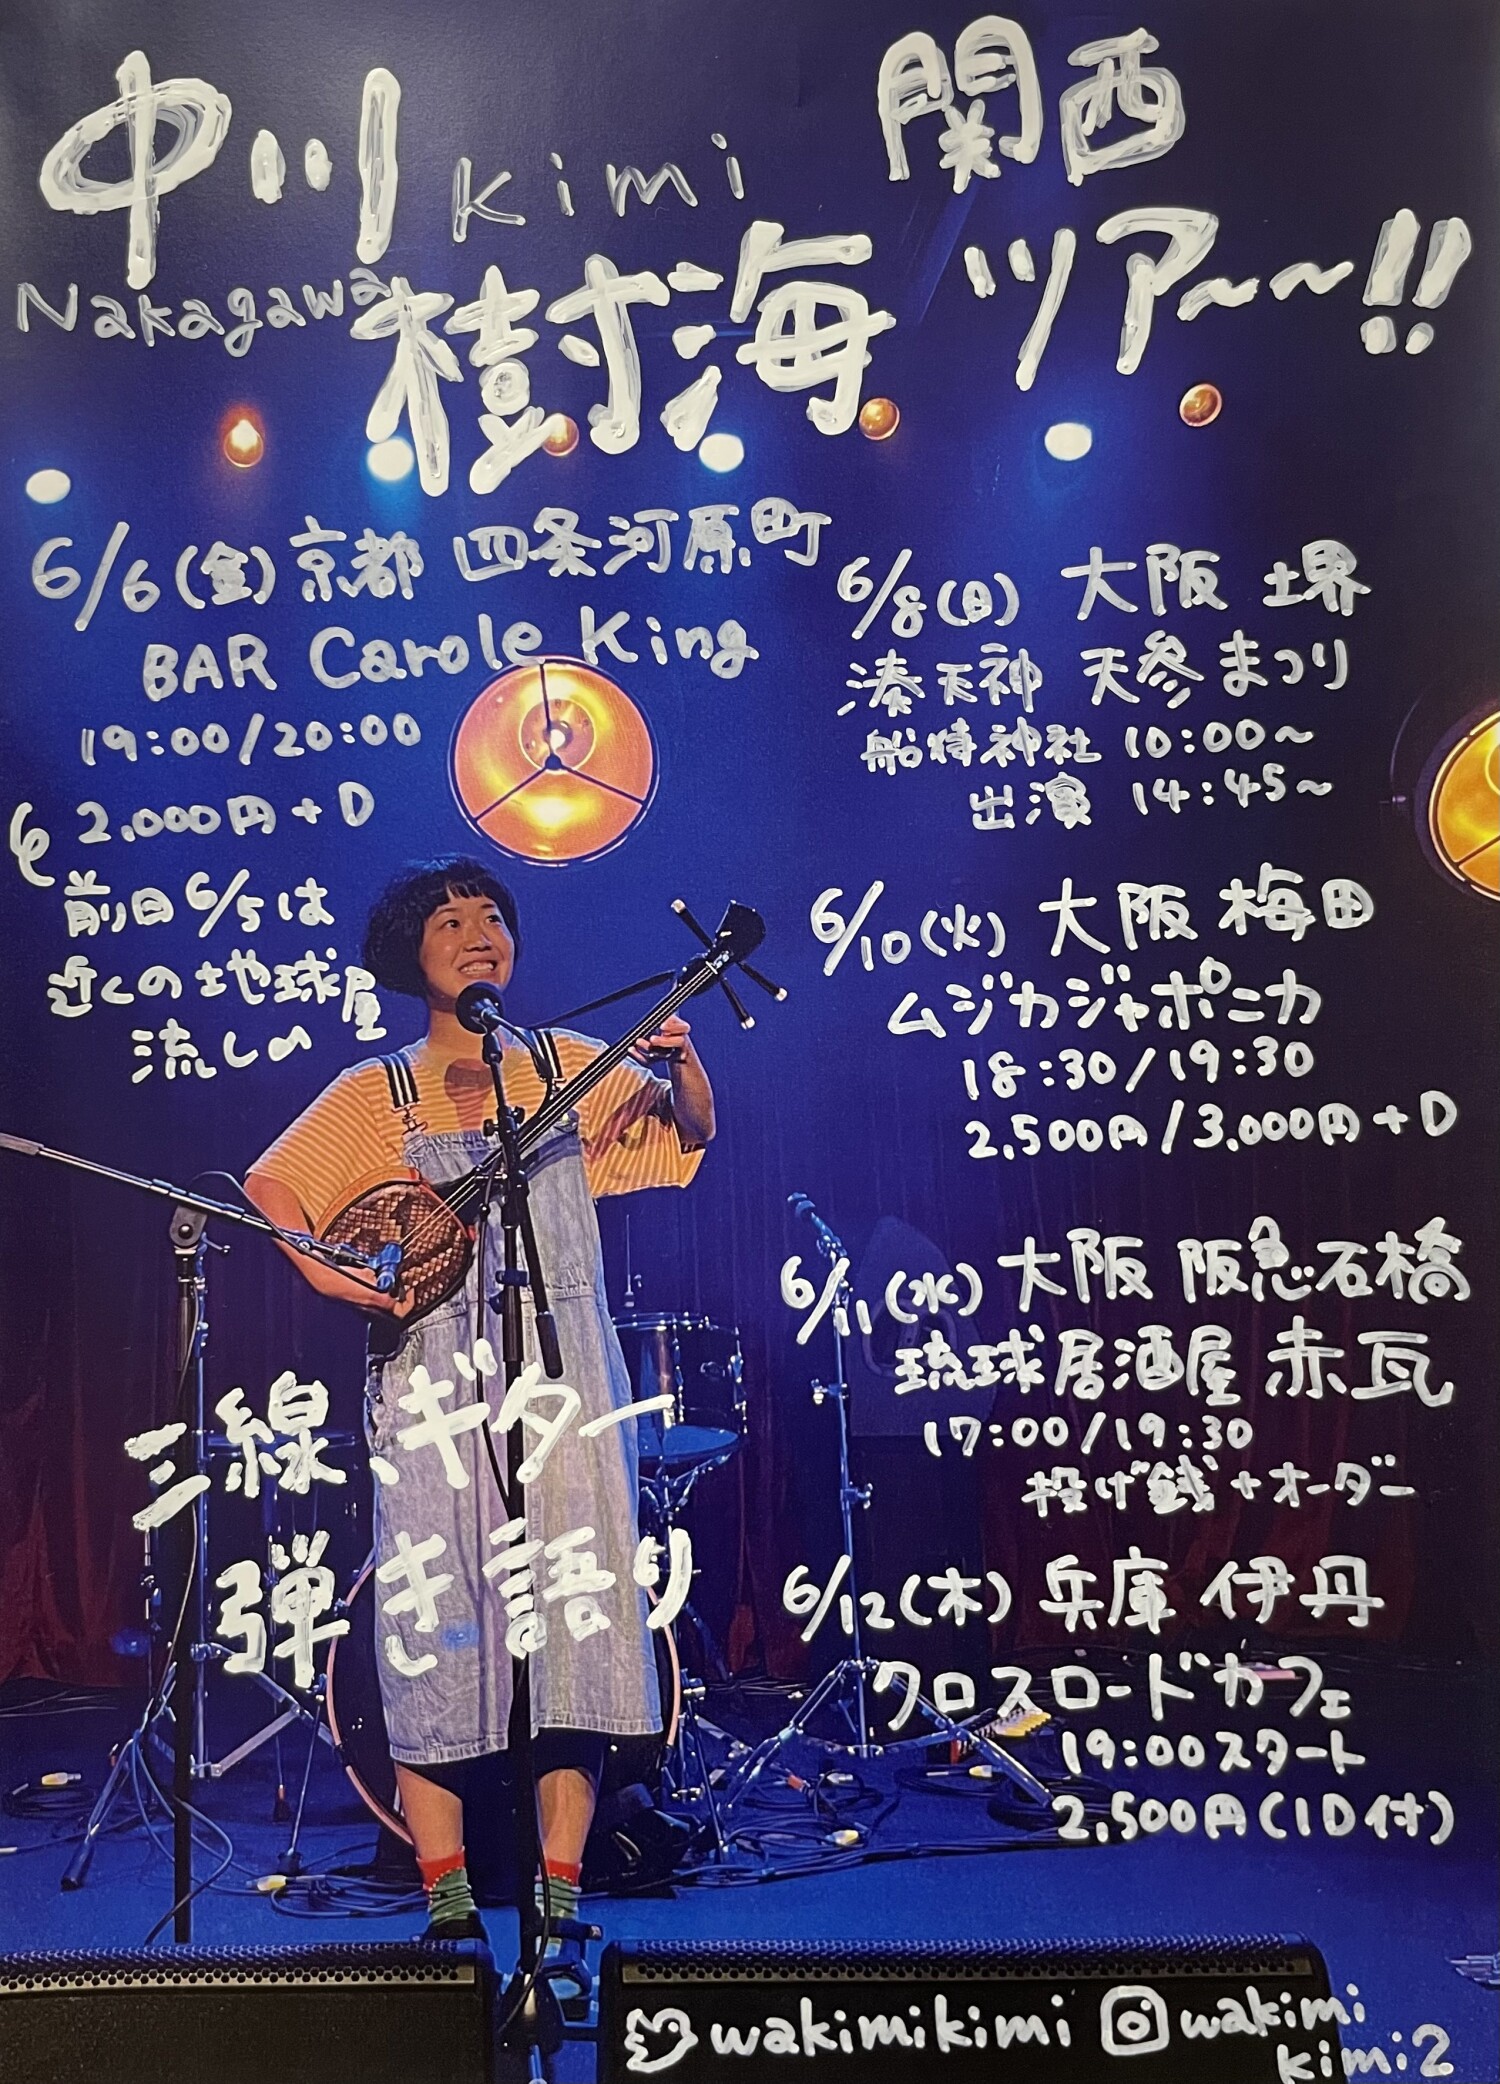 中川 kimi 関西
Nakagawa 樹海 ツアー〜!!
6/6(金) 京都 四条河原町
BAR Carole King
19:00/20:00
2,000円+D
前日6/5は
近くの地球屋
流しの
三線、ギター
弾き語り
6/8(日) 大阪 堺
湊天神 天参まつり
船待神社 10:00〜
出演 14:45〜
6/10(火) 大阪 梅田
ムジカジャポニカ
18:30/19:30
2,500円/3,000円+D
6/11(水) 大阪 阪急石橋
琉球居酒屋 赤瓦
17:00/19:30
投げ銭+オーダー
6/12(木) 兵庫 伊丹
クロスロードカフェ
19:00スタート
2,500円(1D付)
wakimikimi wakimi
kimi2